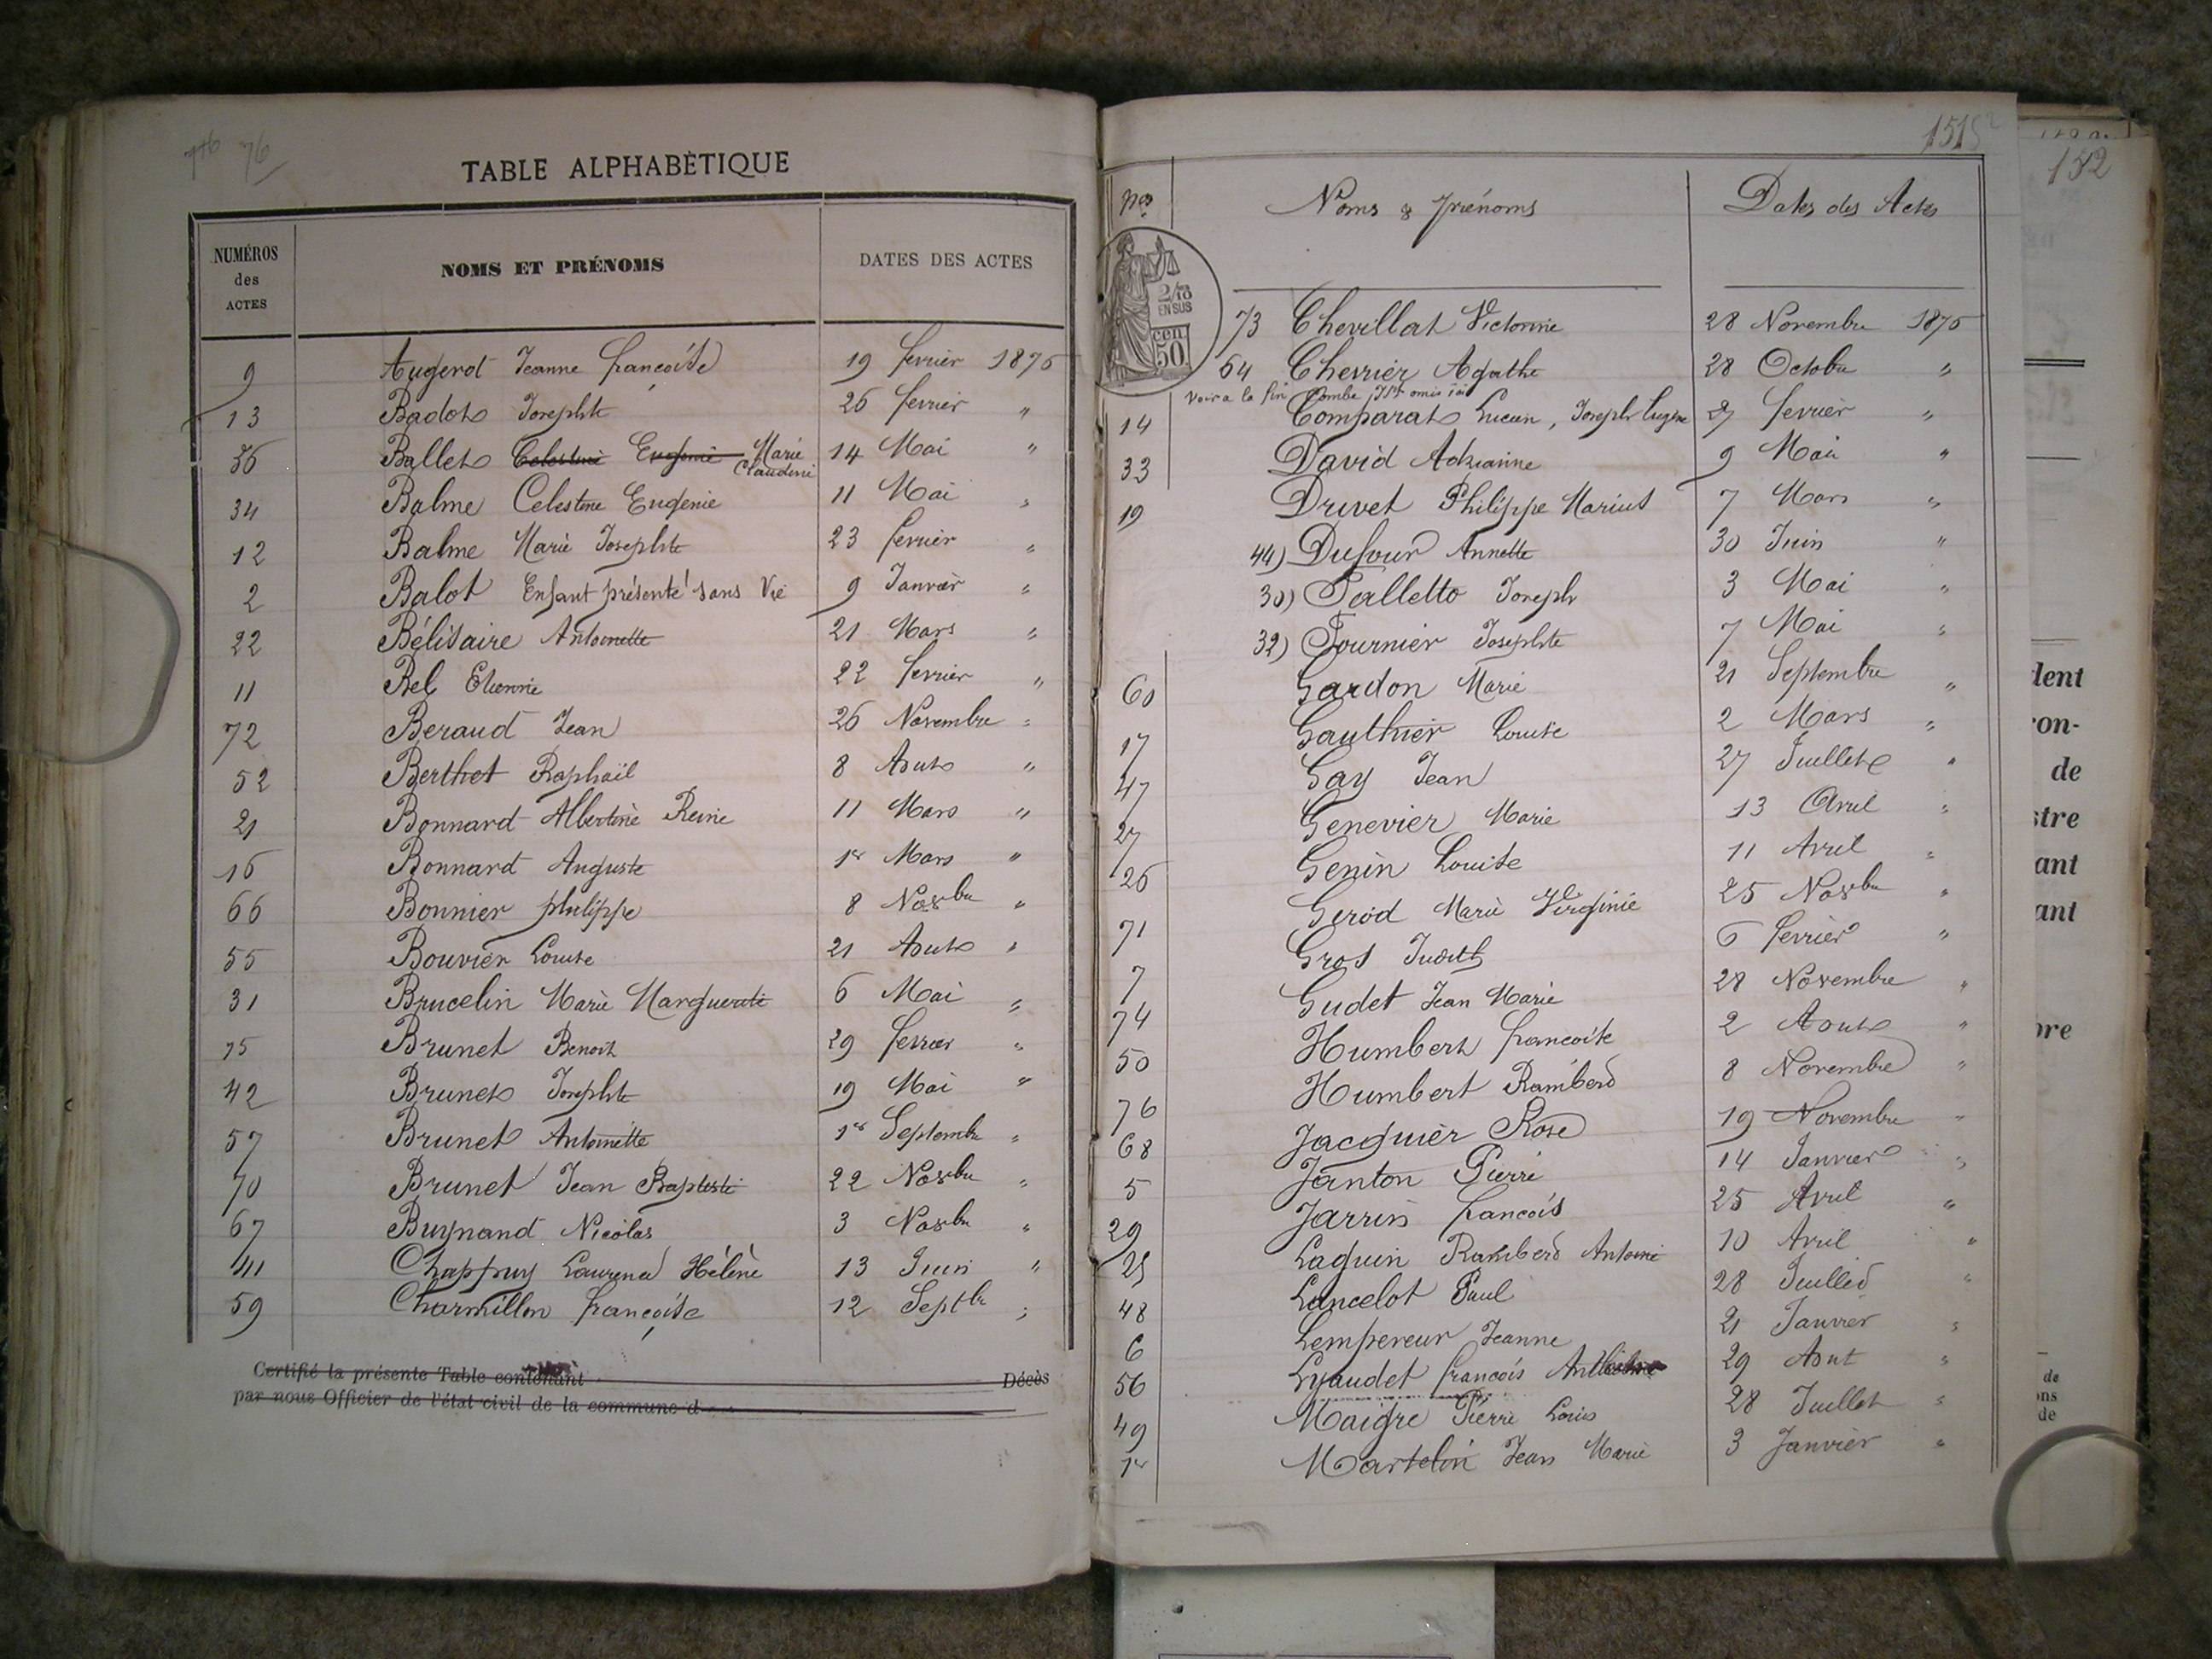 76
TABLE ALPHABÈTIQUE
NUMÉROS des ACTES NOMS ET PRÉNOMS DATES DES ACTES
9 Augerot Jeanne françoise 19 fevrier 1876
13 Badot Josephte 26 fevrier "
36 Ballet Celestine Eugenie Marie Claudine 14 Mai "
34 Balme Celestine Eugenie 11 Mai "
12 Balme Marie Josephte 23 fevrier "
2 Balot Enfant présenté sans Vie 9 Janvier "
22 Bélisaire Antoinette 21 Mars "
11 Bel Etienne 22 fevrier "
72 Beraud Jean 26 Novembre "
52 Berthet Raphaïl 8 Aout "
21 Bonnard Albertine Reine 11 Mars "
16 Bonnard Auguste 1er Mars "
66 Bonnier philippe 8 Novbre "
55 Bouvier Louise 21 Aout "
31 Brucelin Marie Marguerite 6 Mai "
15 Brunet Benoit 29 fevrier "
42 Brunet Josephte 19 Mai "
57 Brunet Antoinette 1er Septembre "
70 Brunet Jean Baptiste 22 Novbre "
67 Buynand Nicolas 3 Novbre "
41 Chappuy Laurence Hélène 13 Juin "
59 Charmillon françoise 12 Septbre "
Certifié la présente Table contenant Décès
par nous Officier de l'état civil de la commune d
151
Nos Noms & prénoms Dates des Actes
2/10 EN SUS
50 cen
73 Chevillat Victorine 28 Novembre 1876
64 Cherrier Agathe 28 Octobre "
Voir a la fin Combe Jph omis ici
14 Comparat Lucien, Joseph Eugène 27 fevrier "
33 David Adrianne 9 Mai "
19 Drivet Philippe Marius 7 Mars "
44) Dufour Annette 30 Juin "
30) Falletto Joseph 3 Mai "
32) Fournier Josephte 7 Mai "
60 Gardon Marie 21 Septembre "
17 Gauthier Louise 2 Mars "
47 Gay Jean 27 Juillet "
27 Genevier Marie 13 Avril "
26 Genin Louise 11 Avril "
71 Gerod Marie Virginie 25 Novbre "
7 Gros Judith 6 fevrier "
74 Gudet Jean Marie 28 Novembre "
50 Humbert françoise 2 Aout "
76 Humbert Rambert 8 Novembre "
68 Jacquier Rose 19 Novembre "
5 Janton Pierre 14 Janvier "
29 Jarrin francois 25 Avril "
25 Laguin Rambert Antoine 10 Avril "
48 Lancelot Paul 28 Juillet "
6 Lempereur Jeanne 21 Janvier "
56 Lyaudet francois 29 Aout "
49 Maigre Pierre Louis 28 Juillet "
1er Martelin Jean Marie 3 Janvier "
152
dent
ron-
de
stre
ant
ant
bre
de
ons
de